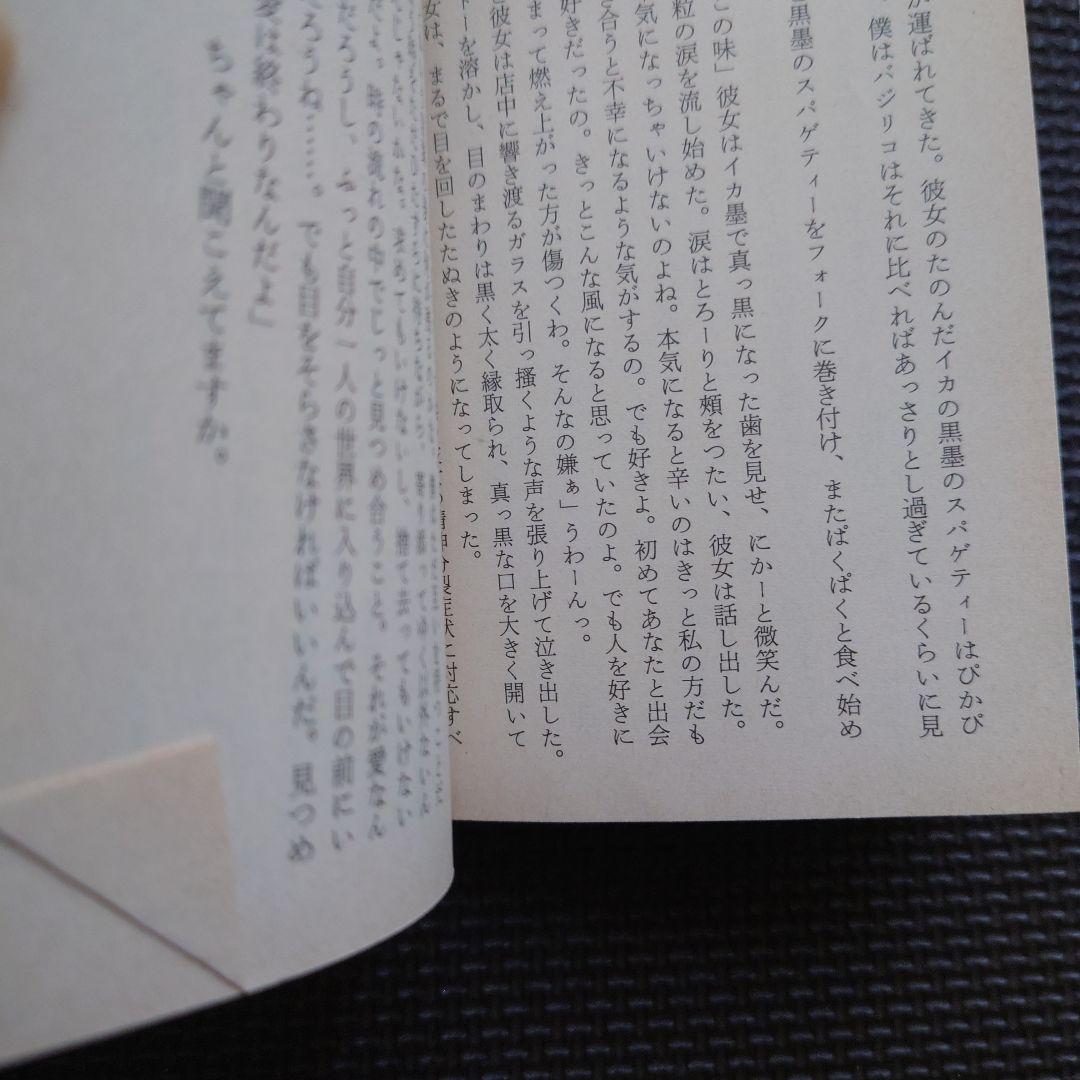 運ばれてきた。彼女のたのんだイカの黒墨のスパゲティーはぴかぴ
、僕はバジリコはそれに比べればあっさりとし過ぎているくらいに見
黒墨のスパゲティーをフォークに巻き付け、またぱくぱくと食べ始め
この味」彼女はイカ墨で真っ黒になった歯を見せ、にかーと微笑んだ。
粒の涙を流し始めた。涙はとろーりと頰をつたい、彼女は話し出した。
気になっちゃいけないのよね。本気になると辛いのはきっと私の方だも
合うと不幸になるような気がするの。でも好きよ。初めてあなたと出会
好きだったの。きっとこんな風になると思っていたのよ。でも人を好きに
まって燃え上がった方が傷つくわ。そんなの嫌ぁ」うわーんっ。
彼女は店中に響き渡るガラスを引っ搔くような声を張り上げて泣き出した。
ーを溶かし、目のまわりは黒く太く縁取られ、真っ黒な口を大きく開いて
女は、まるで目を回したたぬきのようになってしまった。
症状に対応すべ
時の流れの中でじっと見つめ合うこと。それが愛なん
だろうし、ふっと自分一人の世界に入り込んで目の前にい
ろうね……。でも目をそらさなければいいんだ。見つめ
は終わりなんだよ」
ちゃんと聞こえてますか。